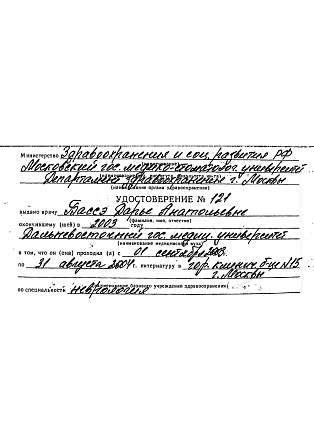 Министерство Здравоохранения и соц. развития РФ
Московский гос. медико-стоматолог. университет
Департамент здравоохранения г. Москвы
(наименование органа здравоохранения)
УДОСТОВЕРЕНИЕ № 121
выдано врачу Бассэ Дарье Анатольевне
(фамилия, имя, отчество)
окончившему (шей) в 2003 году
Дальневосточный гос. медиц. университет
(наименование медицинского вуза)
в том, что он (она) проходил (а) с 01 сентября 2003
по 31 августа 2004 г. интернатуру в гор. клинич. б-це №15
г. Москвы
(наименование базового учреждения здравоохранения)
по специальности неврология